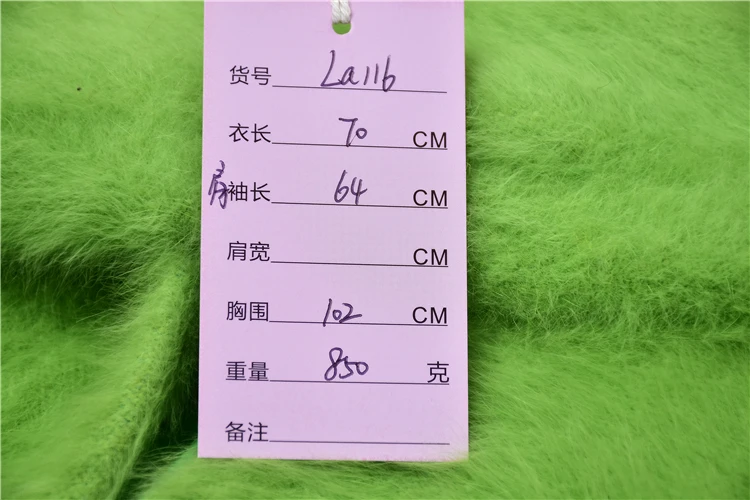 货号 La116
衣长 70 CM
肩袖长 64 CM
肩宽 CM
胸围 102 CM
重量 850 克
备注